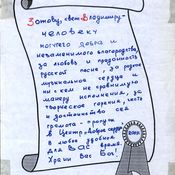 Зотову, свет Владимиру-
человеку
могучего добра и
незаменимого благородства,
за любовь и преданность
русской песне, за родное
музыкальное сердце и
ни с кем не сравнимую
манеру исполнения, за
творческое горение, честь
и достоинство сей
грамота - пропуск
в Центр
в любое удобное
для Вас время.
Храни Вас Бог!